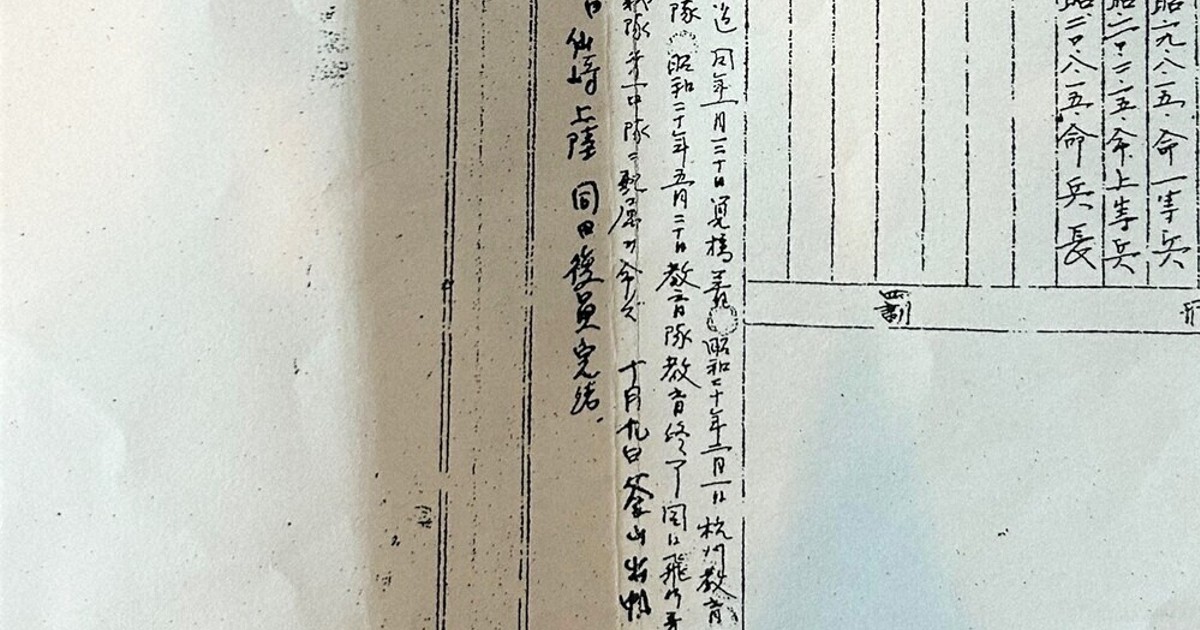 昭一九・八・一五・命一等兵
昭二〇・二・一五・命上等兵
昭二〇・八・一五・命兵長
罰
同年一月三十日筧橋着 昭和二十年二月一日杭州教育
隊 昭和二十年五月二十日教育隊教育終了 同日飛行第
隊第一中隊ニ配属ヲ命ズ 十月九日釜山出帆
日仙崎上陸 同日復員完結